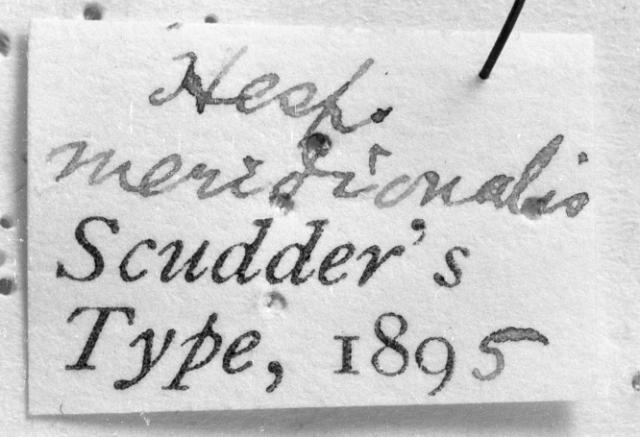 Hesp.
meridionalis
Scudder's
Type, 1895